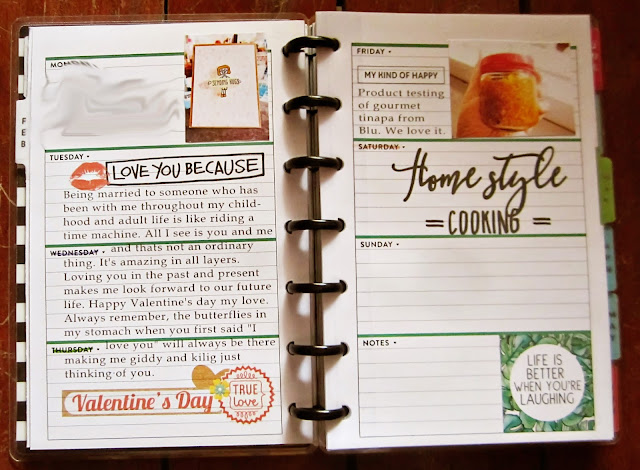 MON
TUESDAY
LOVE YOU BECAUSE
Being married to someone who has
been with me throughout my child-
hood and adult life is like riding a
time machine. All I see is you and me
WEDNESDAY
and thats not an ordinary
thing. It's amazing in all layers.
Loving you in the past and present
makes me look forward to our future
life. Happy Valentine's day my love.
Always remember, the butterflies in
my stomach when you first said "I
THURSDAY
love you" will always be there
making me giddy and kilig just
thinking of you.
Valentine's Day
TRUE
Love
FEB
FRIDAY
MY KIND OF HAPPY
Product testing
of gourmet
tinapa from
Blu. We love it.
SATURDAY
Home style
= COOKING =
SUNDAY
NOTES
LIFE IS
BETTER
WHEN YOU'RE
LAUGHING